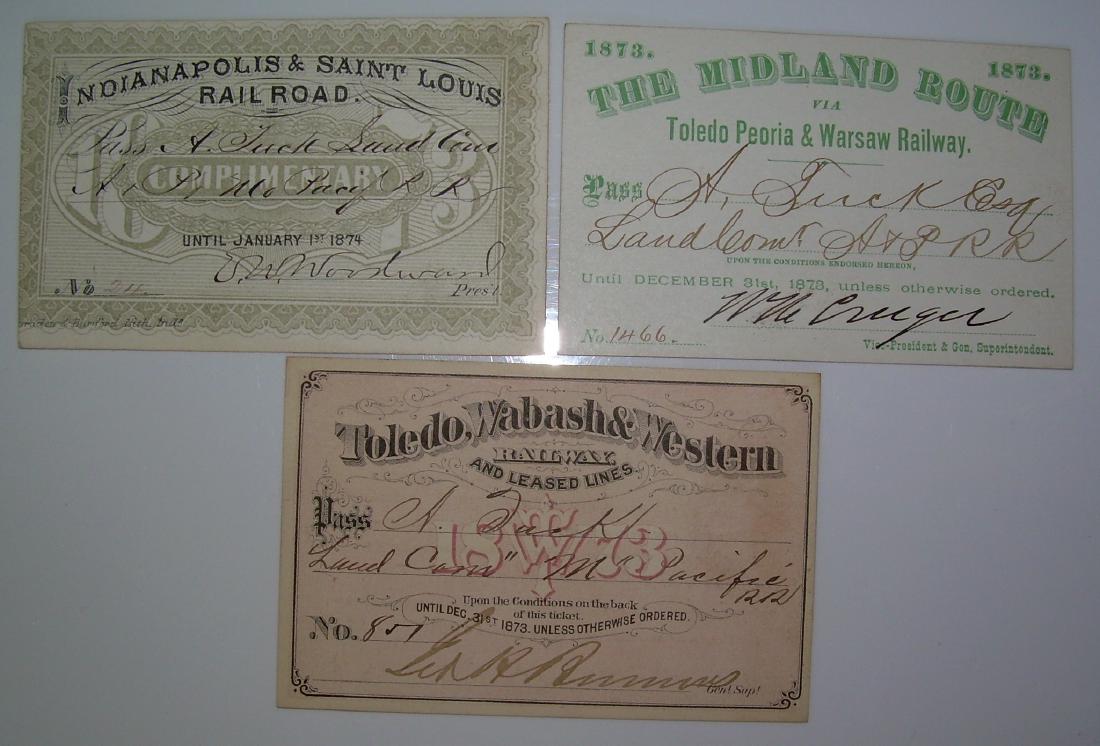 INDIANAPOLIS & SAINT LOUIS
RAILROAD.
Pass A. Tuck Land Com
A & P, Mo Pacif R R
COMPLIMENTARY
1873
UNTIL JANUARY 1ST 1874
E. W. Woodward
No 24
Prest
Braden & Burford Lith. Inds
1873. 1873.
THE MIDLAND ROUTE
VIA
Toledo Peoria & Warsaw Railway.
Pass A. Tuck Esq
Land Comr A & P RR
UPON THE CONDITIONS ENDORSED HEREON,
Until DECEMBER 31st, 1873, unless otherwise ordered.
Wm Cruger
No. 1466.
Vice-President & Gen, Superintendent.
Toledo, Wabash & Western
RAILWAY
AND LEASED LINES.
Pass A. Tuck
18 TWW 73
Land Com" "Mo Pacific
RR
Upon the Conditions on the back
of this ticket.
UNTIL DEC. 31ST 1873. UNLESS OTHERWISE ORDERED.
No. 857
Geo H
Genl Supt